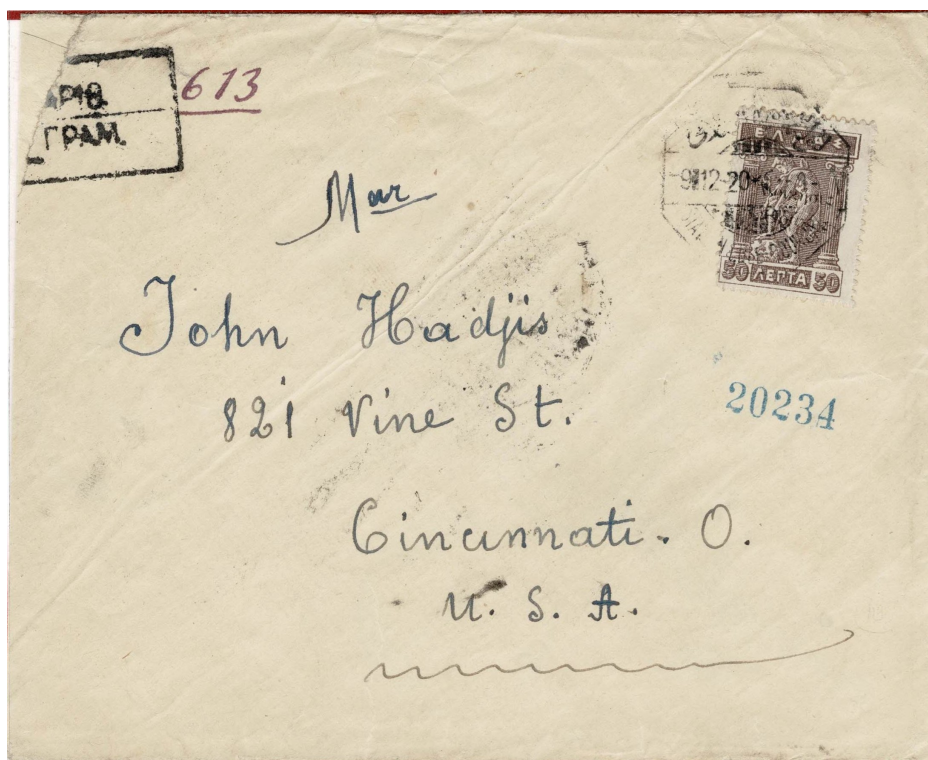 ΑΡΙΘ. 613
ΓΡΑΜ.
ΕΛΛΑΣ
50 ΛΕΠΤΑ 50
Mar
John Hadjis
821 Vine St.
20234
Cincinnati. O.
U. S. A.